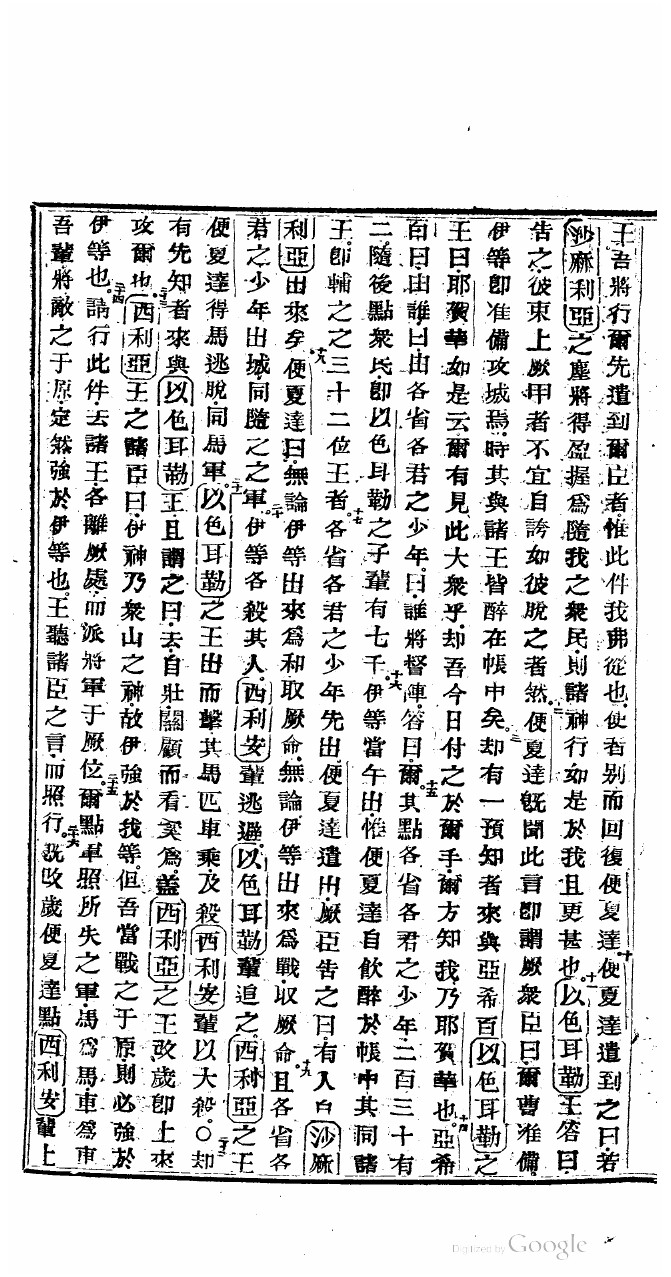 王吾將行爾先遣到爾臣者惟此件我弗從也使者别而回復便夏達十便夏達遣到之曰若
沙麻利亞之塵將得盈握爲隨我之衆民則諸神行如是於我且更甚也十一以色耳勒王答曰
告之彼束上厥甲者不宜自誇如彼脫之者然十二便夏達既聞此言即謂厥衆臣曰爾曹准備
伊等即准備攻城焉時其與諸王皆醉在帳中矣十三却有一預知者來與亞希百以色耳勒之
王曰耶賀華如是云爾有見此大衆乎却吾今日付之於爾手爾方知我乃耶賀華也十四亞希
百曰由誰曰由各省各君之少年曰誰將督陣答曰爾十五其點各省各君之少年二百三十有
二隨後點衆民即以色耳勒之子輩有七千十六伊等當午出惟便夏達自飲醉於帳中其同諸
王即輔之之三十二位王者十七各省各君之少年先出便夏達遣出厥臣告之曰有人自沙麻
利亞出來矣十八便夏達曰無論伊等出來爲和取厥命無論伊等出來爲戰取厥命十九且各省各
君之少年出城同隨之之軍二十伊等各殺其人西利安輩逃避以色耳勒輩追之西利亞之王
便夏達得馬逃脫同馬軍二十一以色耳勒之王出而擊其馬匹車乘及殺西利安輩以大殺〇二十二却
有先知者來與以色耳勒王且謂之曰去自壯關顧而看奚爲蓋西利亞之王改歲即上來
攻爾也二十三西利亞王之諸臣曰伊神乃衆山之神故伊強於我等但吾當戰之于原則必強於
伊等也二十四請行此件去諸王各離厥處而派將軍于厥位二十五爾點軍照所失之軍馬爲馬車爲車
吾輩將敵之于原定然強於伊等也王聽諸臣之言而照行二十六既改歲便夏達點西利安輩上
Digitized by Google